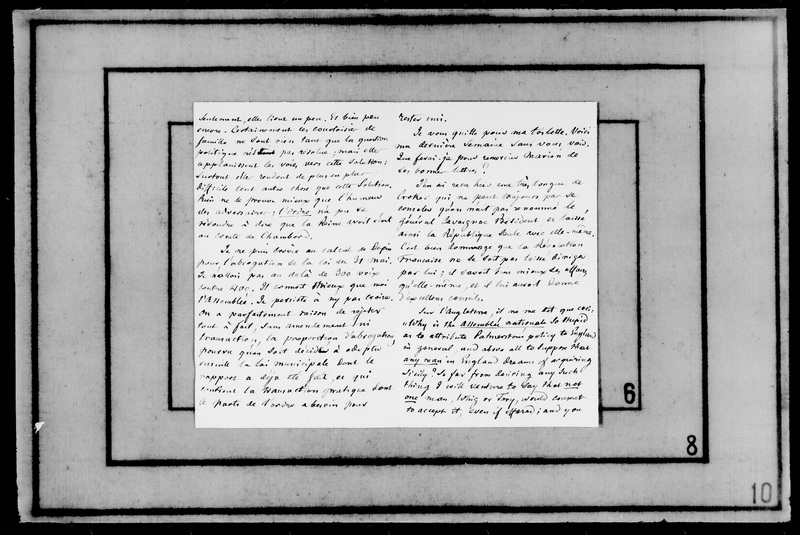 seulement, elles lient un peu. Et bien peu
encore. Certainement les courtoisies de
famille ne sont rien tant que la question
politique n'est pas résolue ; mais elles
applanissent les voies vers cette solution ;
surtout elles rendent de plus en plus
difficile tout autre chose que cette solution.
Rien ne le prouve mieux que l'humeur
des adversaires ; l'ordre n'a pu se
résoudre à dire que la Reine avoit écrit
au comte de Chambord.
Je ne puis croire au calcul de Dupin
pour l'abrogation de la loi du 31 mai.
Je n'allois pas au delà de 300 voix
contre 400. Il connoit mieux que moi
l'Assemblée. Je persiste à n'y pas croire.
On a parfaitement raison de rejeter
tout à fait, sans amendement ni
transaction, la proposition d'abrogation,
pourvu qu'on soit décidé à adopter
ensuite la loi municipale dont le
rapport a déjà été fait, et qui
contient la transaction pratique dont
le parti de l'ordre a besoin pour
rester uni.
Je vous quitte pour ma toilette. Voici
ma dernière semaine sans vous voir.
Que ferai-je pour remercier Marion de
ses bonnes lettres ?
J'en ai reçu hier une très longue de
Croker qui ne peut toujours pas se
consoler qu'on n'ait pas renommé le
général Cavaignac Président et laissé
ainsi la République seule avec elle-même.
C'est bien dommage que la Révolution
Française ne se soit pas laissé diriger
par lui ; il savoit bien mieux ses affaires
qu'elle-même, et il lui auroit donné
d'excellens conseils.
Sur l'Angleterre, il ne me dit que ceci,
"Why is the assemblée nationale so stupid
as to attribute Palmerston's policy to England
in general and above all to suppose that
any man in England dreams of acquiring
Sicily ? So far from desiring any such
thing I will venture to say that not
one man, Whig or Tory, would consent
to accept it, even if offered ; and you
6
8
10